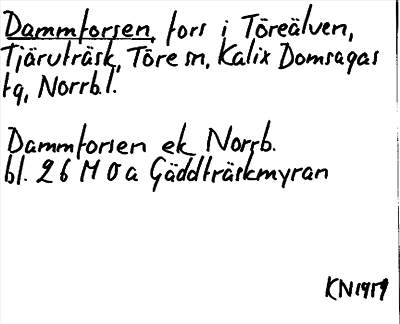 Dammforsen, fors i Töreälven,
Tjäruträsk, Töre sn, Kalix Domsagas
tg, Norrb. l.
Dammforsen ek Norrb.
bl. 26 M 0 a Gäddträskmyran
KN 1959